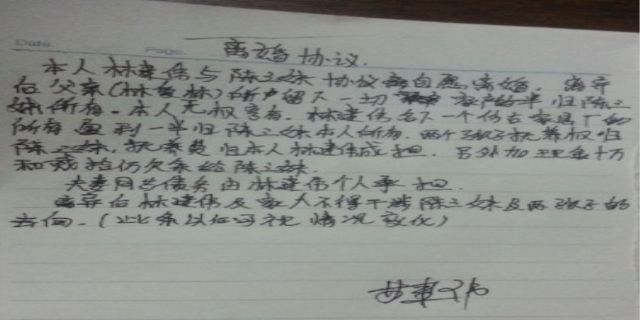 Date Page
离婚协议.
本人林建伟与陈三妹协议自愿离婚. 离异
后父亲(林 林)所留下一切 的一半归陈三
妹所有. 本人无权享有. 林建伟名下一个仿古家具厂的
所有 到一半归陈三妹本人所有. 两个孩子扶养权归
陈三妹, 扶养费归本人林建伟承担. 另外加 十万
和 拾仍欠条给陈三妹.
夫妻同共债务由林建伟个人承担.
离异后林建伟及家人不得干涉陈三妹及两孩子的
去向. (此条以任何 情况变化)
林建伟